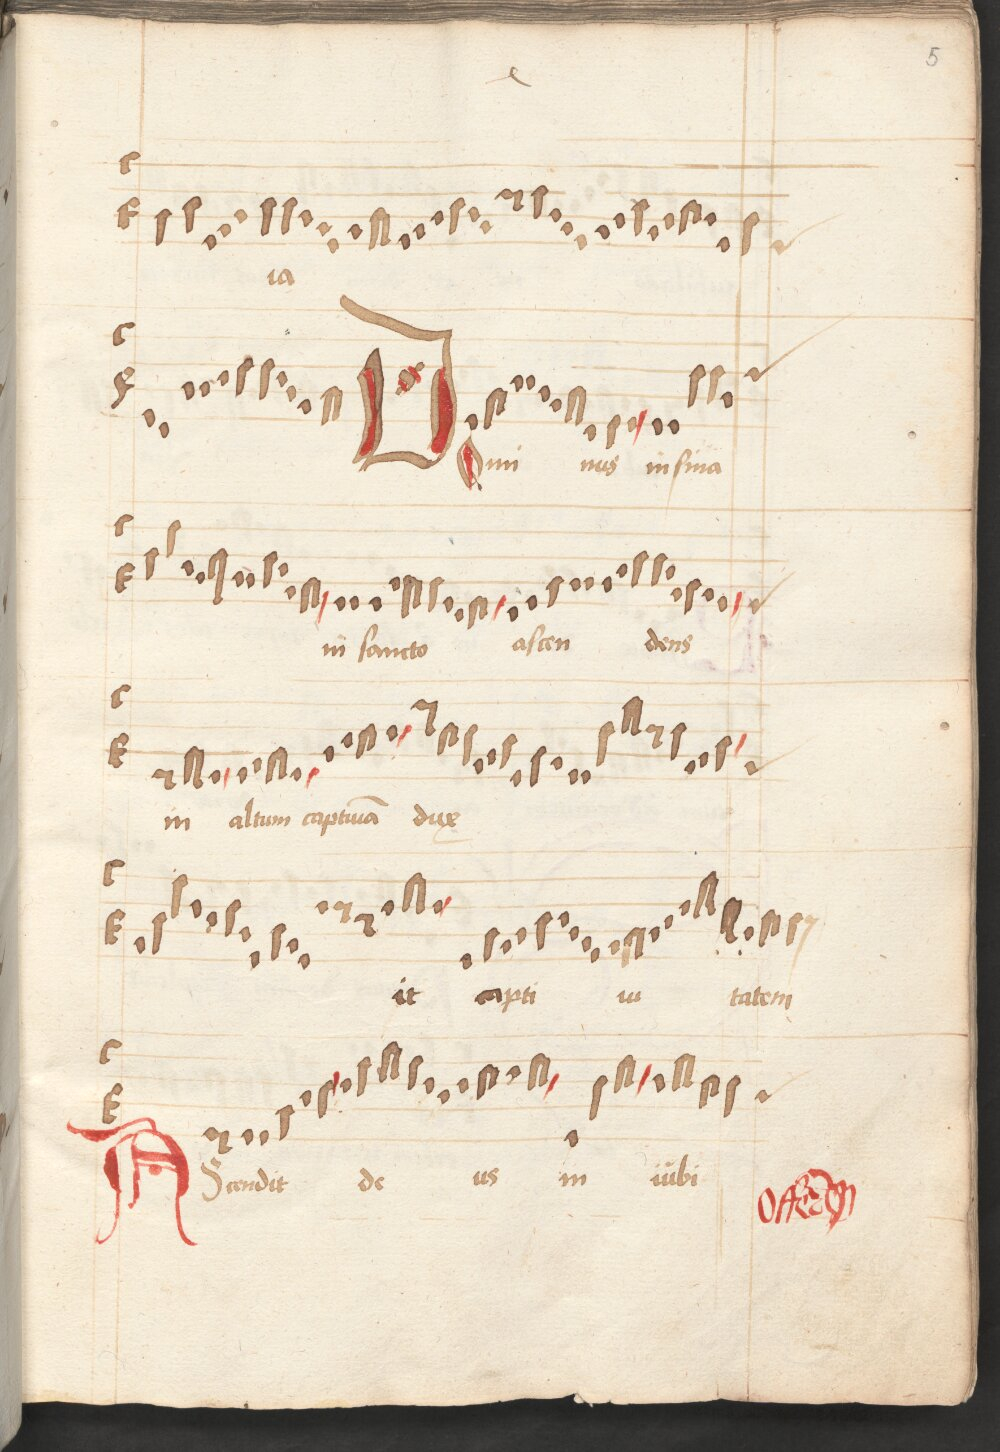 5
ia
Dominus in sina
in sancto ascen dens
in altum captiuā dux
it capti ui tatem
AScendit de us in iubi